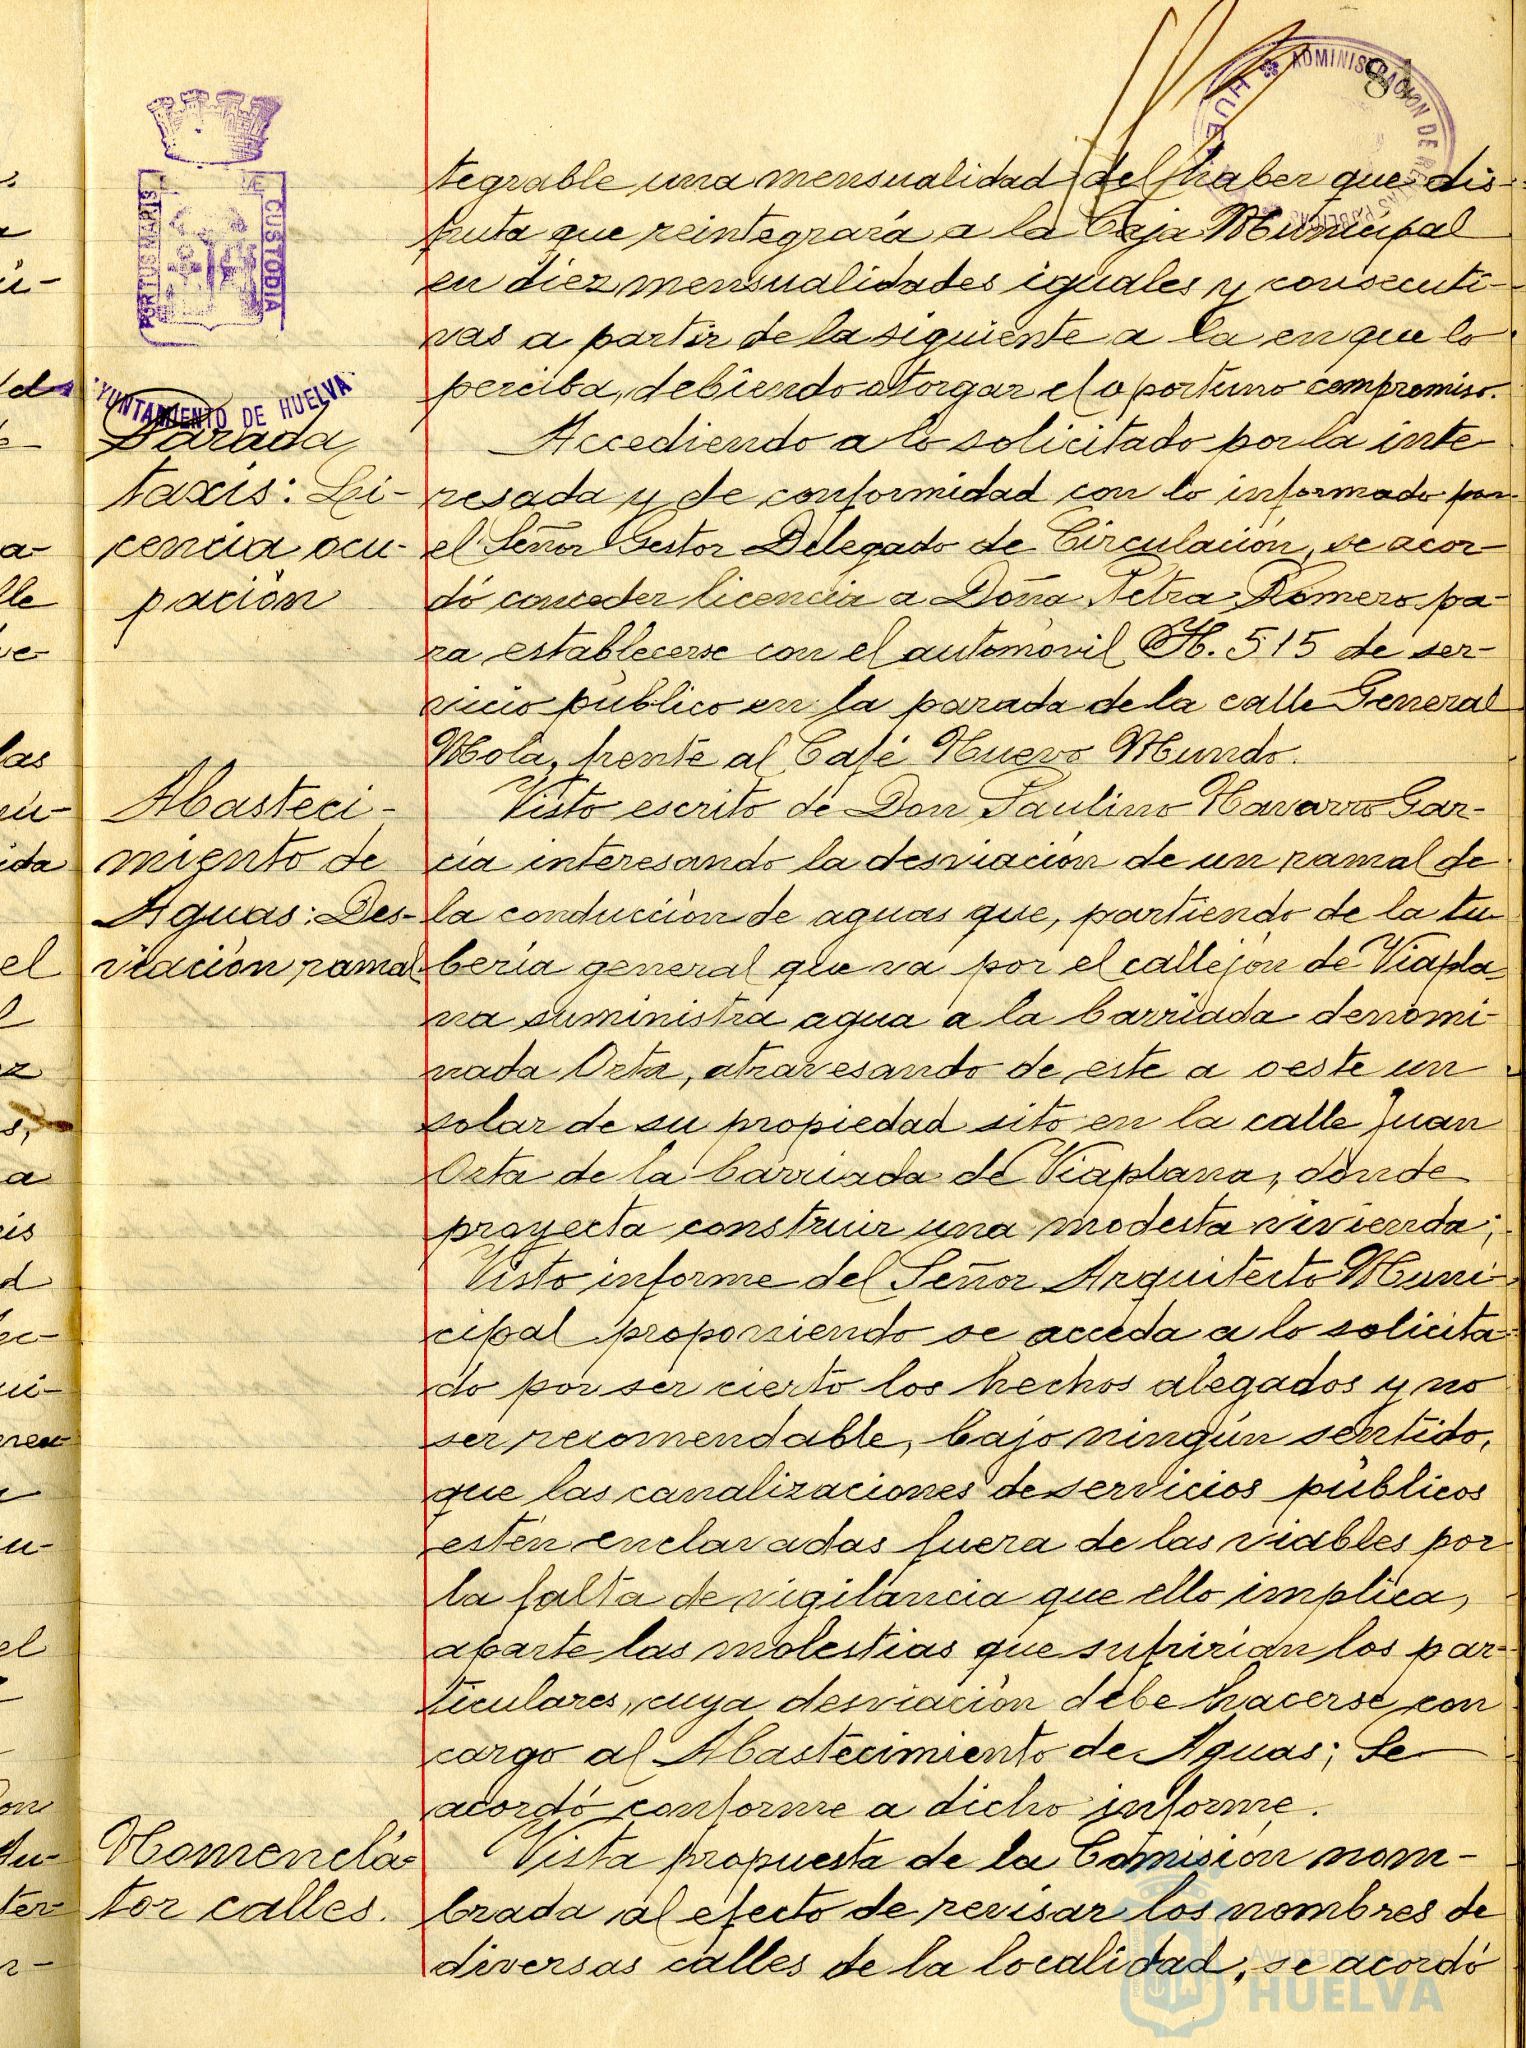 84
ADMINISTRACIÓN DE RENTAS PÚBLICAS
HUELVA
PORTUS MARIS
CUSTODIA
AYUNTAMIENTO DE HUELVA
tegrable una mensualidad del haber que dis-
fruta que reintegrará a la Caja Municipal
en diez mensualidades iguales y consecuti-
vas a partir de la siguiente a la en que lo
perciba, debiendo otorgar el oportuno compromiso.
Parada
taxis: Li-
cencia ocu-
pación
Accediendo a lo solicitado por la inte-
resada y de conformidad con lo informado por
el Señor Gestor Delegado de Circulación, se acor-
dó conceder licencia a Doña Petra Romero pa-
ra establecerse con el automóvil H. 515 de ser-
vicio público en la parada de la calle General
Mola, frente al Café Nuevo Mundo.
Abasteci-
miento de
Aguas: Des-
viación ramal
Visto escrito de Don Paulino Navarro Gar-
cía interesando la desviación de un ramal de
la conducción de aguas que, partiendo de la tu-
bería general que va por el callejón de Viapla-
na suministra agua a la barriada denomi-
nada Orta, atravesando de este a oeste un
solar de su propiedad sito en la calle Juan
Orta de la barriada de Viaplana, donde
proyecta construir una modesta vivienda;
Visto informe del Señor Arquitecto Muni-
cipal proponiendo se acceda a lo solicita-
do por ser cierto los hechos alegados y no
ser recomendable, bajo ningún sentido,
que las canalizaciones de servicios públicos
estén enclavadas fuera de las viables por
la falta de vigilancia que ello implica,
aparte las molestias que sufririan los par-
ticulares, cuya desviación debe hacerse con
cargo al Abastecimiento de Aguas; Se
acordó conforme a dicho informe.
Nomenclá-
tor calles.
Vista propuesta de la Comisión nom-
brada al efecto de revisar los nombres de
diversas calles de la localidad, se acordó
Ayuntamiento de
HUELVA